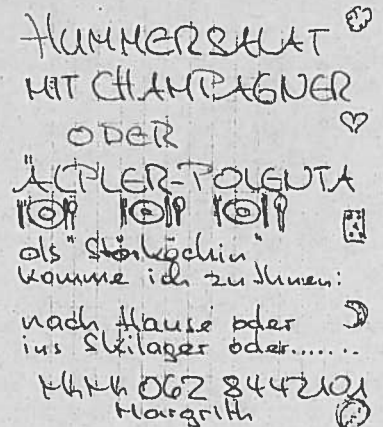 HUMMERSALAT
MIT CHAMPAGNER
ODER
ÄLPLER-POLENTA
als "Störköchin"
komme ich zu Ihnen:
nach Hause oder
ins Skilager oder.......
062 8442101
Margrith